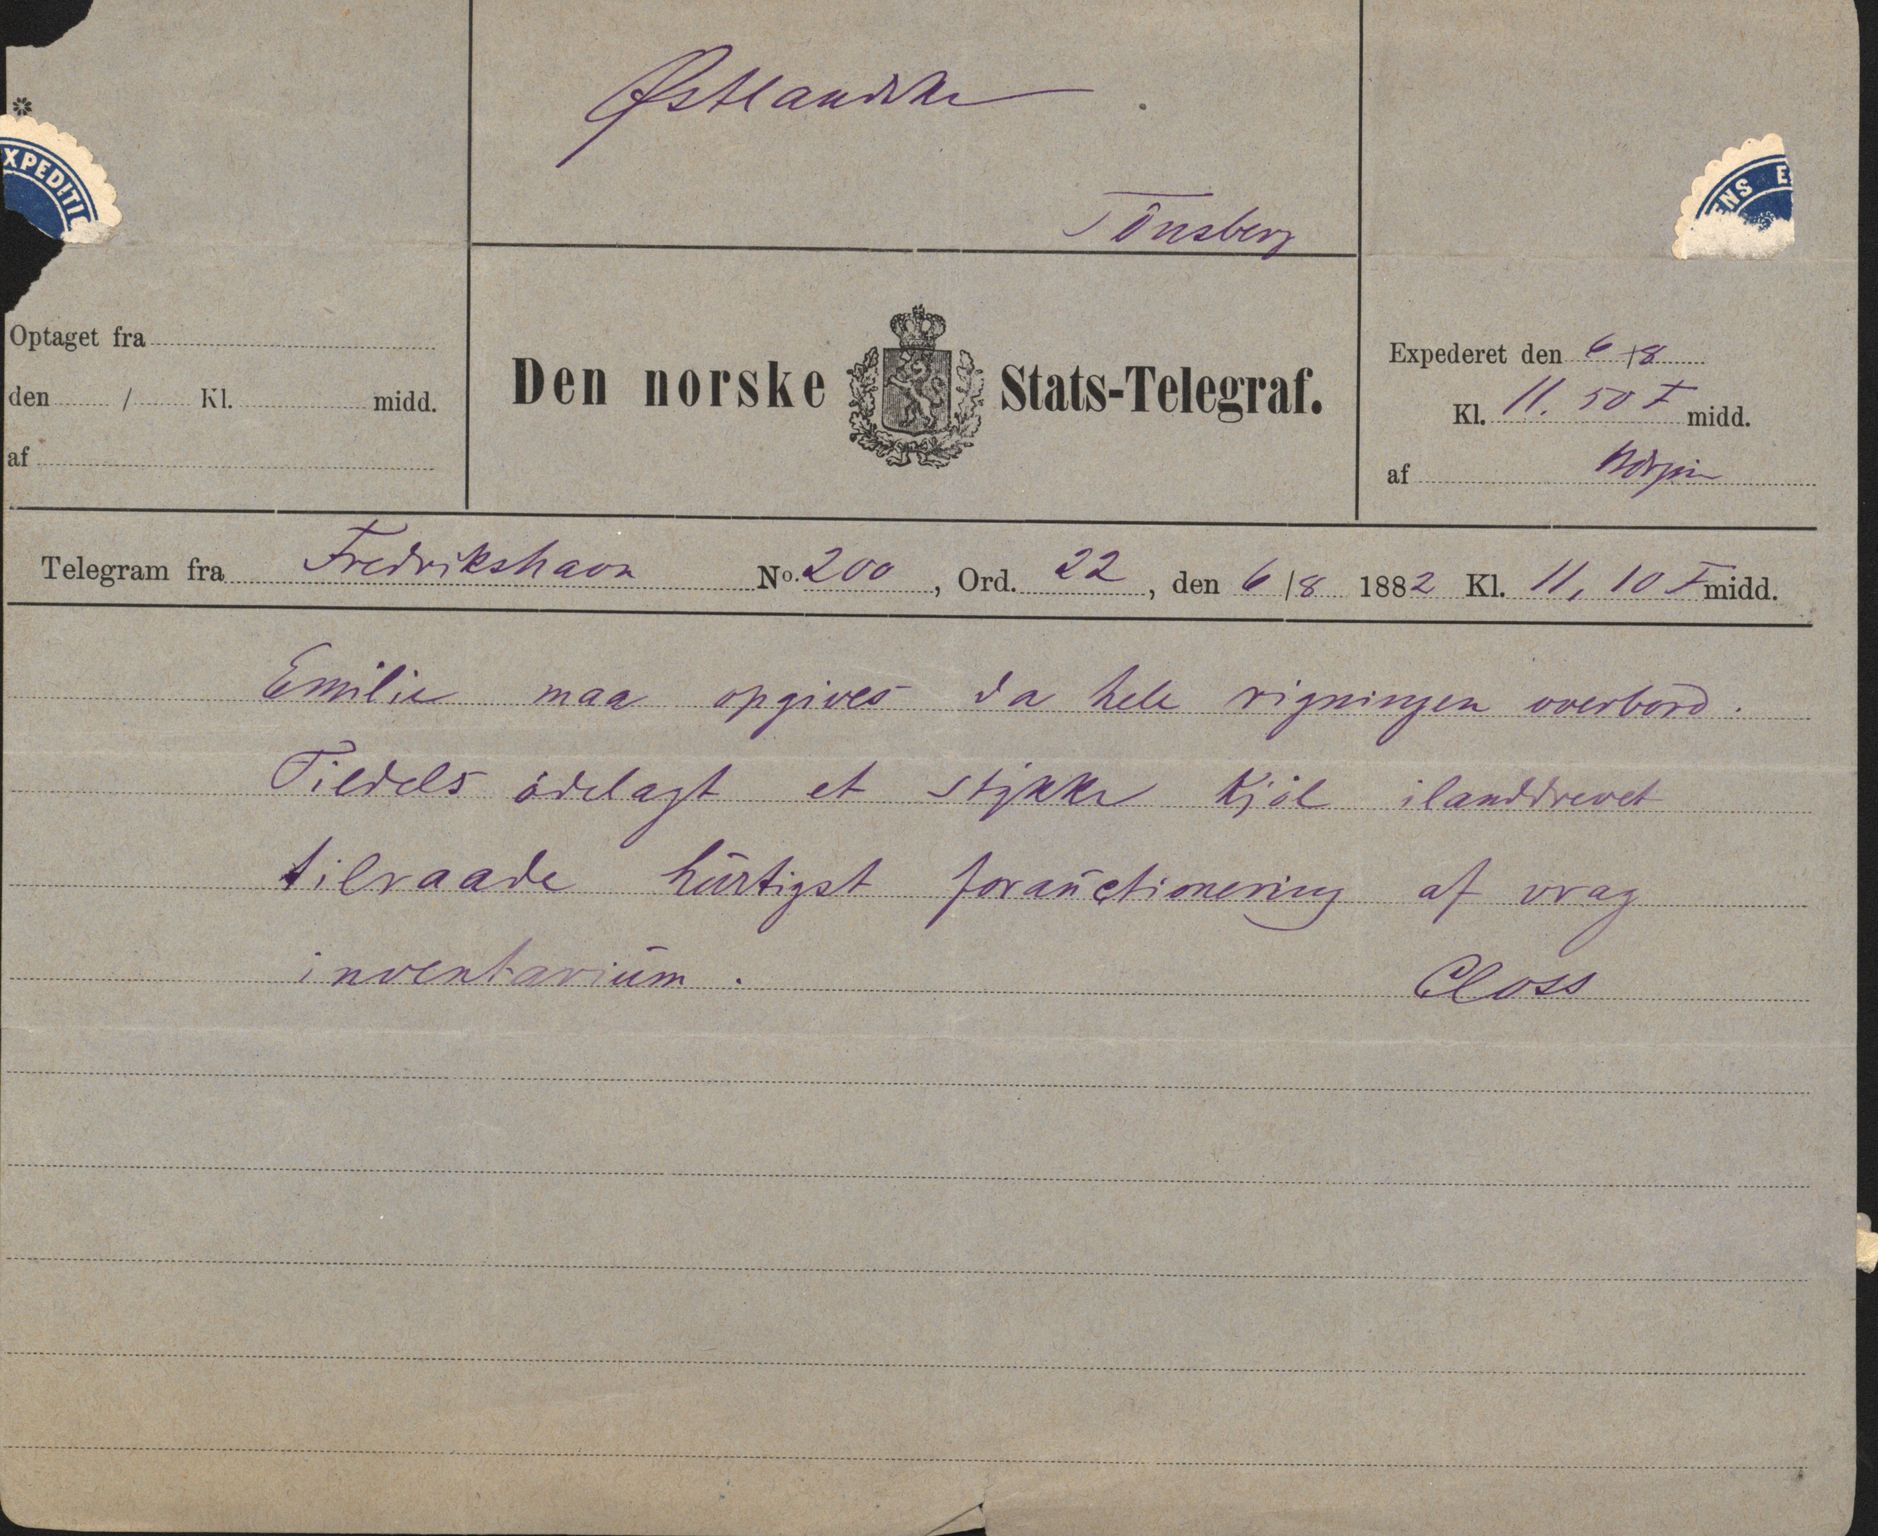 Østlandske
Tönsberg
XPEDITI
ENS E
Optaget fra
den / Kl. midd.
af
Den norske Stats-Telegraf.
Expederet den 6/8
Kl. 11.50 F midd.
af
Telegram fra Fredrikshavn No. 200, Ord. 22, den 6/8 1882 Kl. 11,10 F midd.
Emilie maa opgives da hele rigningen overbord.
Tildels ödelagt et stykke Kjöl ilanddrevet
tilraade hurtigst forauctionering af vrag
inventarium. Closs